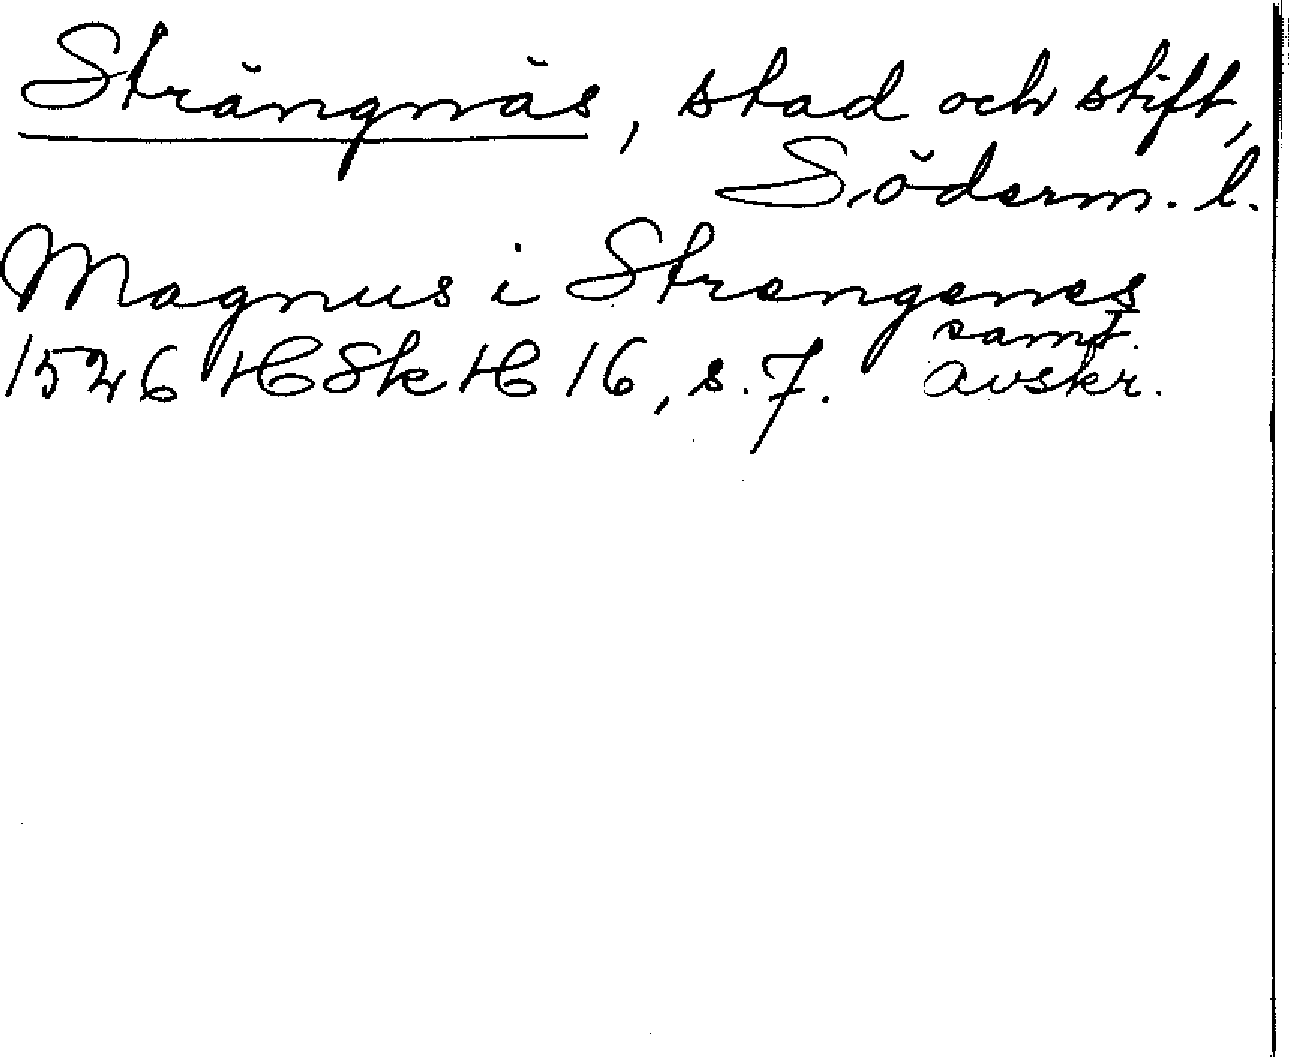 Strängnäs, stad och stift,
Söderm. l.
Magnus i Strengenes
samt.
1526 HSkH 16, s. 7. avskr.